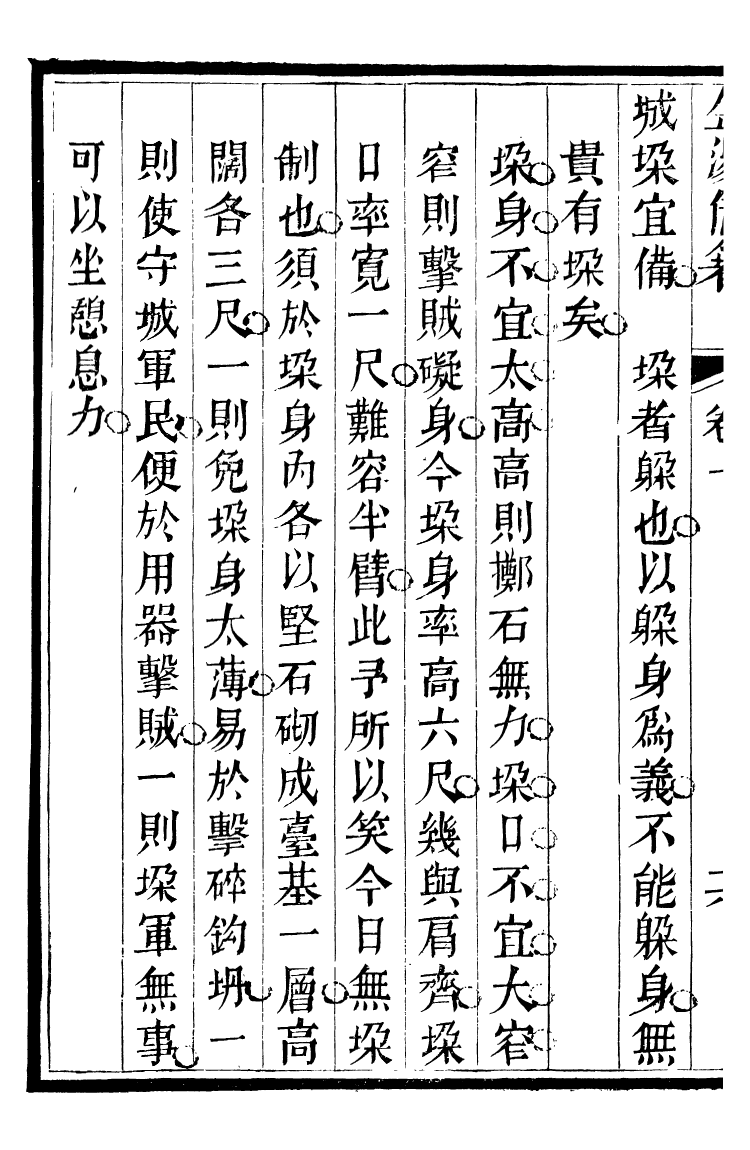 城垜宜備　垜者躲也以躲身爲義不能躲身無
貴有垜矣
垜身不宜太高高則擲石無力垜口不宜大窄
窄則擊賊礙身今垜身率高六尺幾與肩齊垜
口率寬一尺難容半臂此予所以笑今日無垜
制也須於垜身內各以堅石砌成臺基一層高
闊各三尺一則免垜身太薄易於擊碎鈎坍一
則使守城軍民便於用器擊賊一則垜軍無事
可以坐憩息力